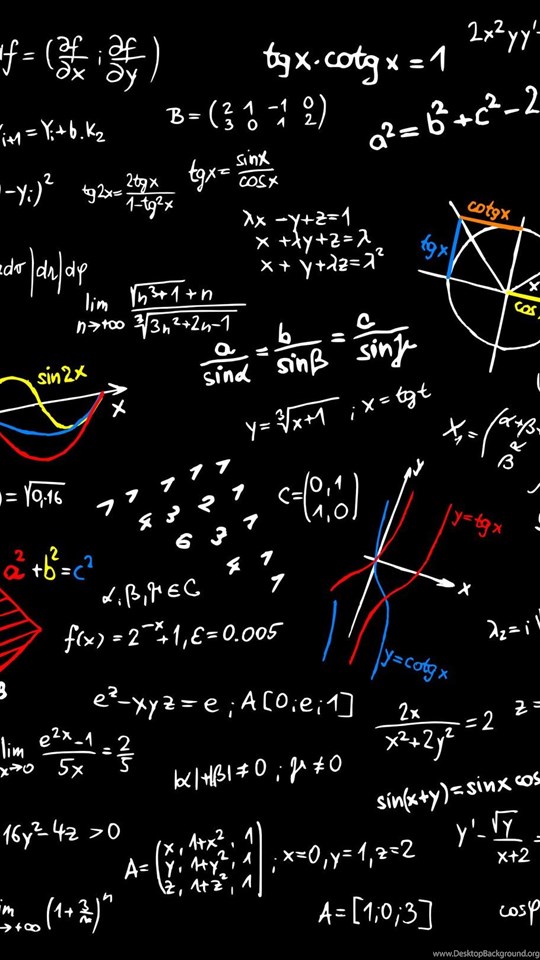 f = (∂f/∂x ; ∂f/∂y)
tgx·cotgx = 1
2x²yy'
Yᵢ₊₁ = Yᵢ + b·K₂
B = (2 1 -1 0
3 0 1 2)
a² = b² + c² - 2
-yᵢ)²
tg2x = 2tgx/1-tg²x
tgx = sinx/cosx
λx - y + z = 1
x + λy + z = λ
x + y + λz = λ²
cotgx
tgx
x
cos
|dr|dφ
lim n→+∞ (√(n³+1) + n)/∛(3n²+2n-1)
a/sinα = b/sinβ = c/sinγ
sin2x
x
y = ∛(x+1) ; x = tgt
X₁ = (α+β+
α
β
= √0,16
1 1 1 1 1
4 3 2 1
6 3 1
4 1
1
C = (0, 1
1, 0)
y
y=tgx
x
y=cotgx
a² + b² = c²
α, β, γ ∈ C
f(x) = 2⁻ˣ + 1, ε = 0.005
λ₂ = i
eᶻ - xyz = e ; A[0; e; 1]
2x/x²+2y² = 2
z =
lim x→0 e²ˣ-1/5x = 2/5
|α|+|β| ≠ 0 ; γ ≠ 0
sin(x+y) = sinx cos
16y² - 4z > 0
A = (x, 1+x², 1
y, 1+y², 1
z, 1+z², 1) ; x=0, y=1, z=2
y' - √y/x+2 =
→+∞ (1 + 3/n)ⁿ
A = [1; 0; 3]
cosφ
www.DesktopBackground.org